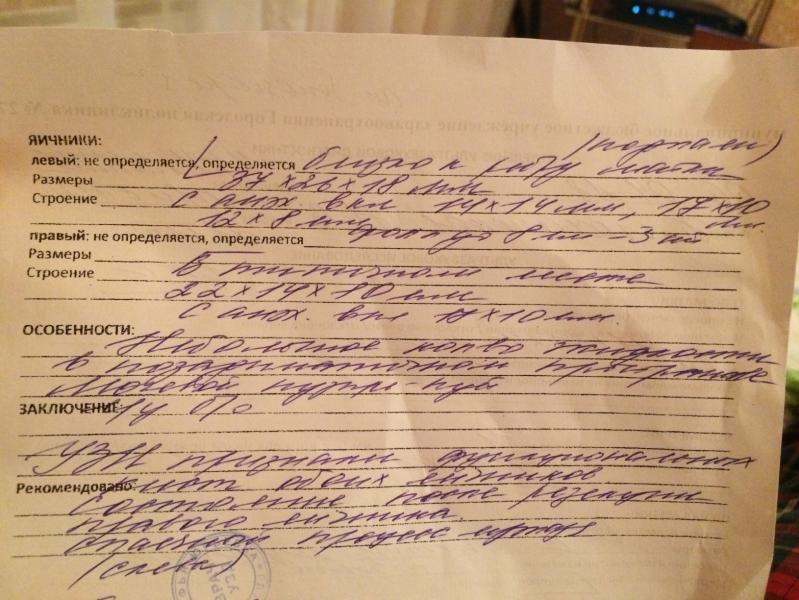 (подпаян)
ЯИЧНИКИ:
левый: не определяется, определяется близко к ребру матки
Размеры 37 х 26 х 18 мм
Строение С анэх. вкл 14 х 14 мм, 17 х 10 мм.
12 х 8 мм
правый: не определяется, определяется до 8 мм - 3 шт
Размеры
Строение В типичном месте
22 х 14 х 10 мм
С анэх. вкл 11 х 10 мм.
ОСОБЕННОСТИ:
Небольшое кол-во жидкости
в позадиматочном пространстве
Мочевой пузырь - пуст
ЗАКЛЮЧЕНИЕ:
УЗИ признаки функциональных
кист обоих яичников
Рекомендовано:
Состояние после резекции
правого яичника
Спаечный процесс
(слева)